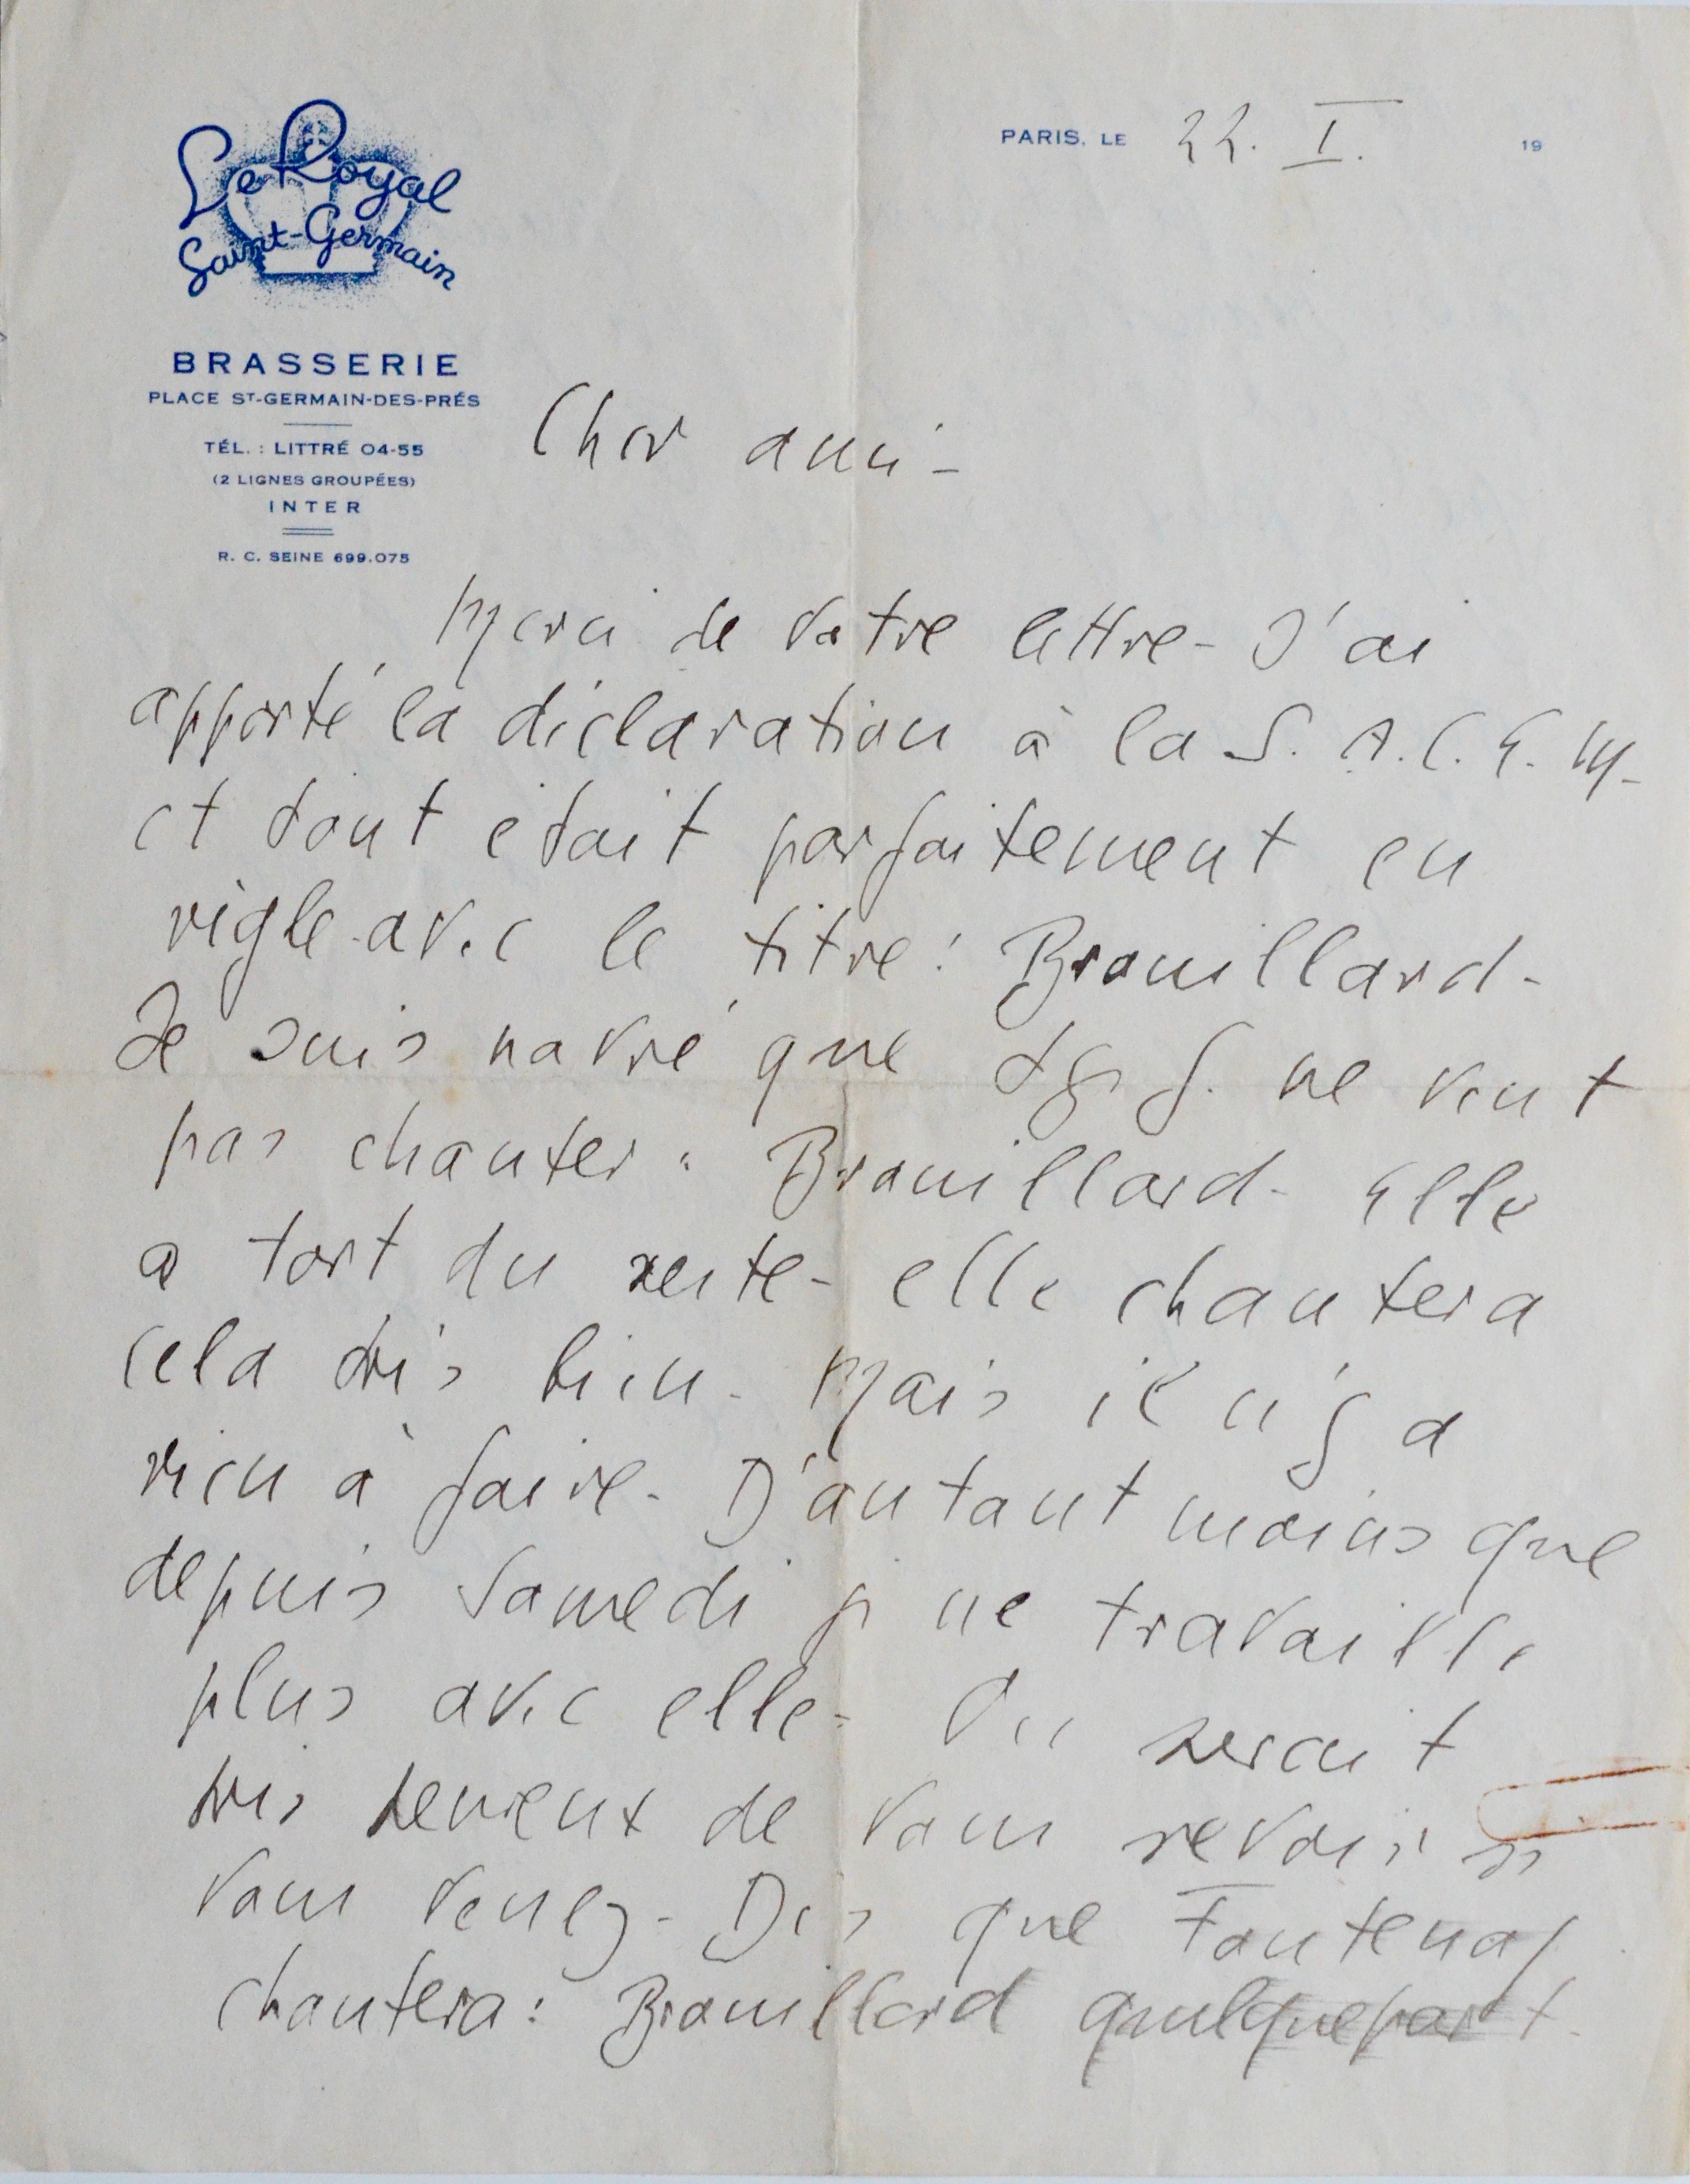 Le Royal
Saint-Germain
BRASSERIE
PLACE ST-GERMAIN-DES-PRÉS
TÉL. : LITTRÉ 04-55
(2 LIGNES GROUPÉES)
INTER
R. C. SEINE 699.075
PARIS, LE 22. I. 19
Cher ami -
Merci de votre lettre - J'ai
apporté la déclaration à la S. A. C. E. M -
et tout était parfaitement en
règle avec le titre : Brouillard -
Je suis navré que ne veut
pas chanter : Brouillard - Elle
a tort du reste - elle chantera
cela très bien - Mais il n'y a
rien à faire - D'autant moins que
depuis Samedi je ne travaille
plus avec elle - On serait
très heureux de vous revoir si
vous venez - Dès que Fontenay
chantera : Brouillard quelquepart -